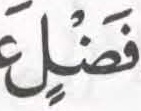 فَضْلٍ عَ